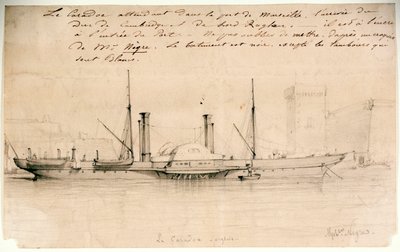 Le Caradoc attendant dans le port de Marseille, l'arrivée du
Duc de Cambridge et de Lord Raglan; il est à l'ancre
à l'entrée du Port. Ne pas oublier de mettre, d'après un croquis
de Mr. Nègre. Le bâtiment est noir, excepté les tambours qui
sont blancs.
Le Caradoc anglais